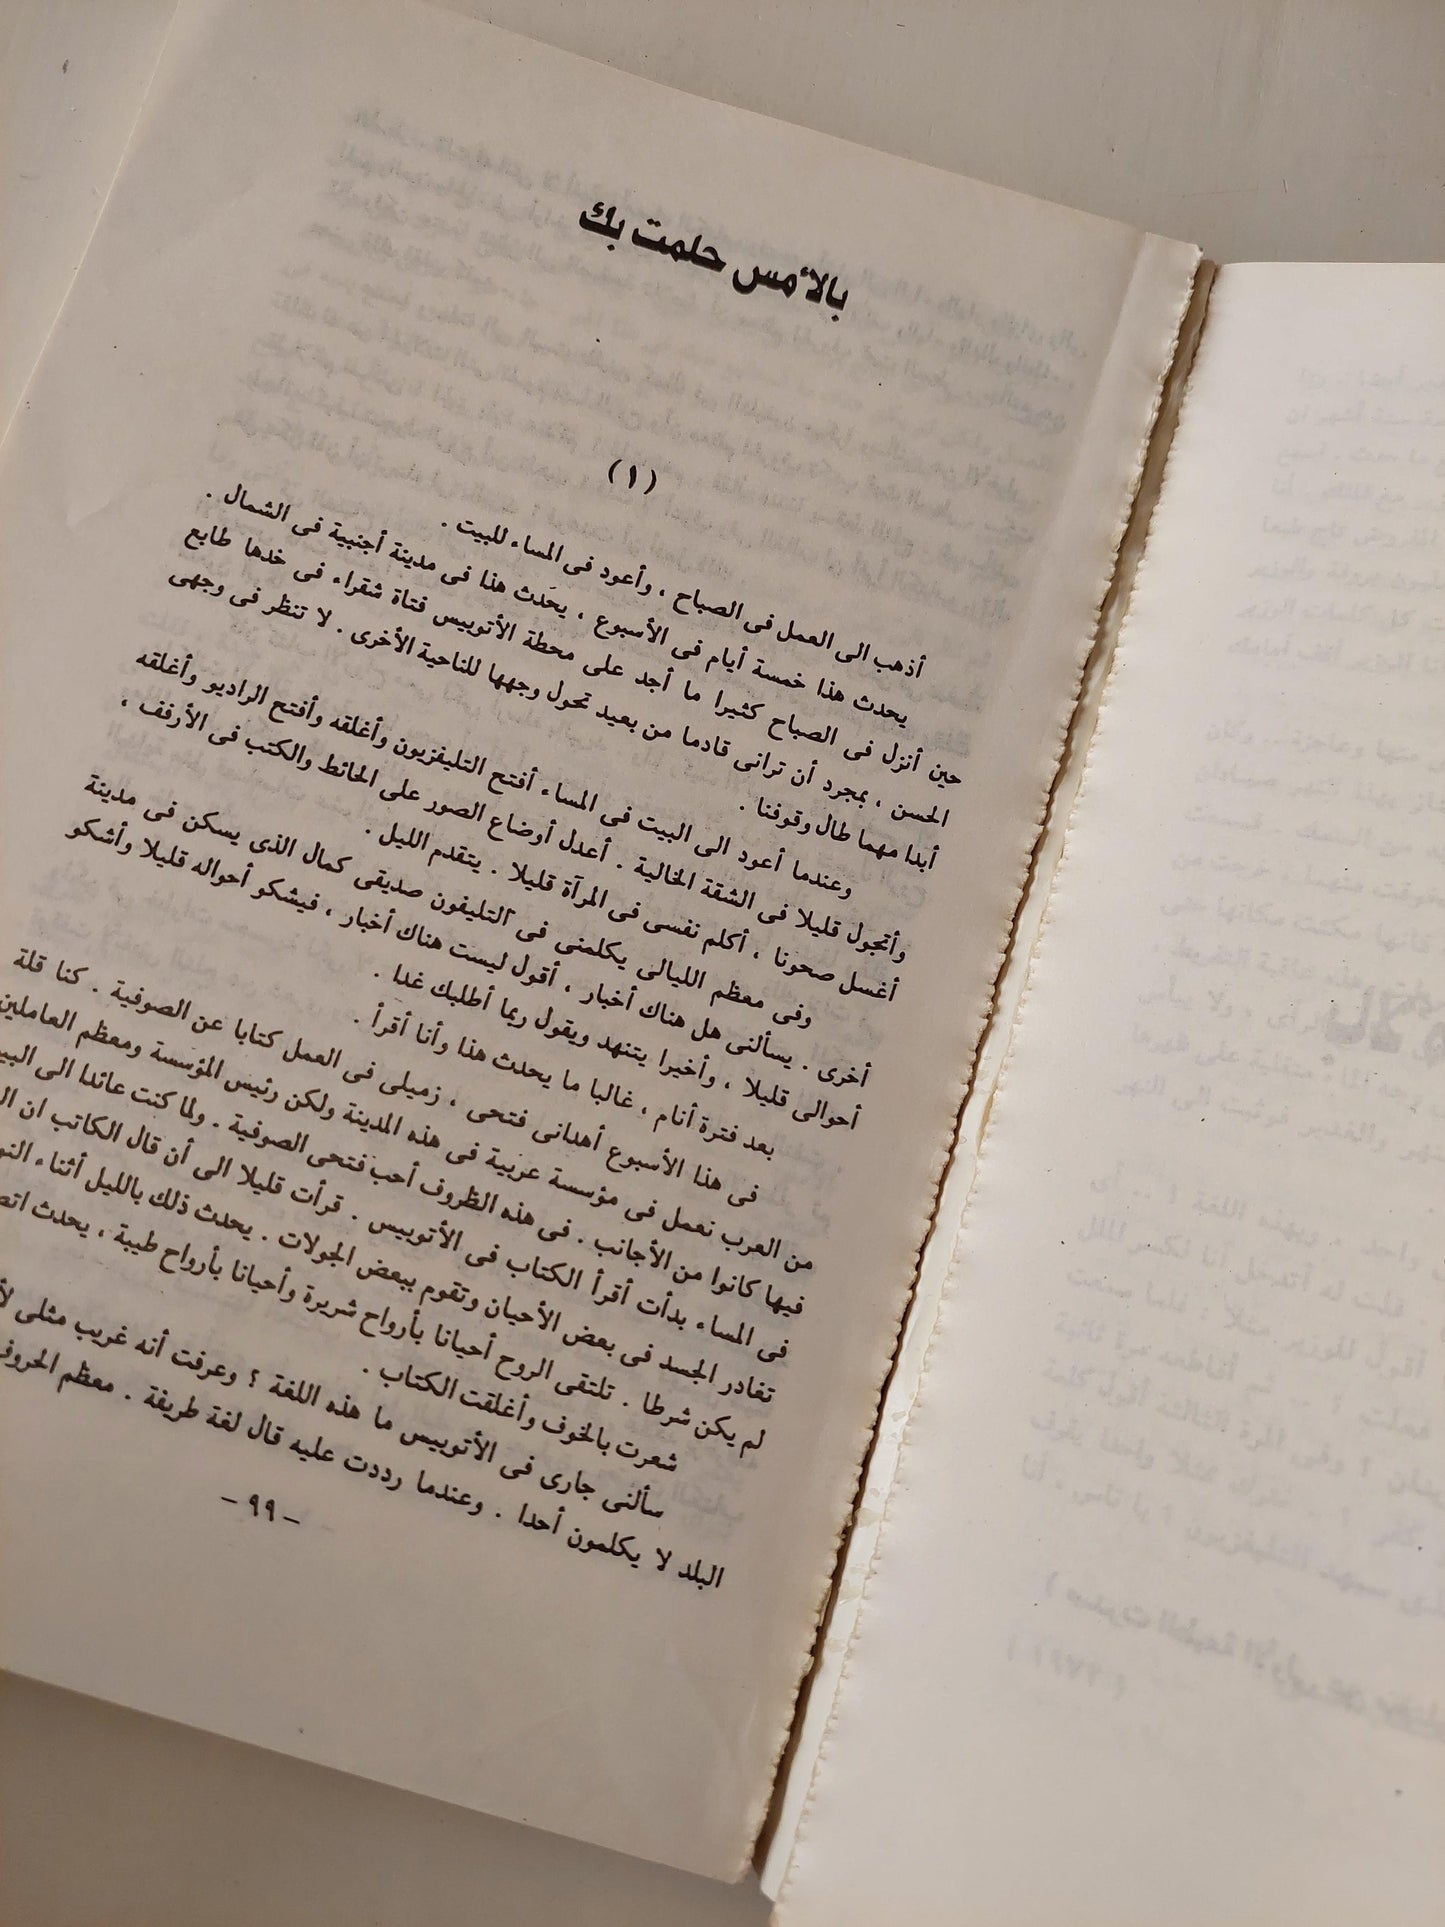 بالأمس حلمت بك
(١)
أذهب الى العمل فى الصباح ، وأعود فى المساء للبيت .
يحدث هذا خمسة أيام فى الأسبوع ، يحدث هذا فى مدينة أجنبية فى الشمال .
حين أنزل فى الصباح كثيرا ما أجد على محطة الأتوبيس فتاة شقراء فى خدها طابع
الحسن ، بمجرد أن ترانى قادما من بعيد تحول وجهها للناحية الأخرى . لا تنظر فى وجهى
أبدا مهما طال وقوفنا .
وعندما أعود الى البيت فى المساء أفتح التليفزيون وأغلقه وأفتح الراديو وأغلقه
وأتجول قليلا فى الشقة الخالية . أعدل أوضاع الصور على الحائط والكتب فى الأرفف ،
أغسل صحونا ، أكلم نفسى فى المرآة قليلا . يتقدم الليل .
وفى معظم الليالى يكلمنى فى التليفون صديقى كمال الذى يسكن فى مدينة
أخرى . يسألنى هل هناك أخبار ، أقول ليست هناك أخبار ، فيشكو أحواله قليلا وأشكو
أحوالى قليلا ، وأخيرا يتنهد ويقول ربما أطلبك غدا .
بعد فترة أنام ، غالبا ما يحدث هذا وأنا أقرأ .
فى هذا الأسبوع أهدانى فتحى ، زميلى فى العمل كتابا عن الصوفية . كنا قلة
من العرب نعمل فى مؤسسة عربية فى هذه المدينة ولكن رئيس المؤسسة ومعظم العاملين
فيها كانوا من الأجانب . فى هذه الظروف أحب فتحى الصوفية . ولما كنت عائدا الى
فى المساء بدأت أقرأ الكتاب فى الأتوبيس . قرأت قليلا الى أن قال الكاتب ان
تغادر الجسد فى بعض الأحيان وتقوم ببعض الجولات . يحدث ذلك بالليل أثناء
لم يكن شرطا . تلتقى الروح أحيانا بأرواح شريرة وأحيانا بأرواح طيبة ، يحدث
شعرت بالخوف وأغلقت الكتاب .
سألنى جارى فى الأتوبيس ما هذه اللغة ؟ وعرفت أنه غريب مثلى
البلد لا يكلمون أحدا . وعندما رددت عليه قال لغة طريفة . معظم
- ٩٩ -